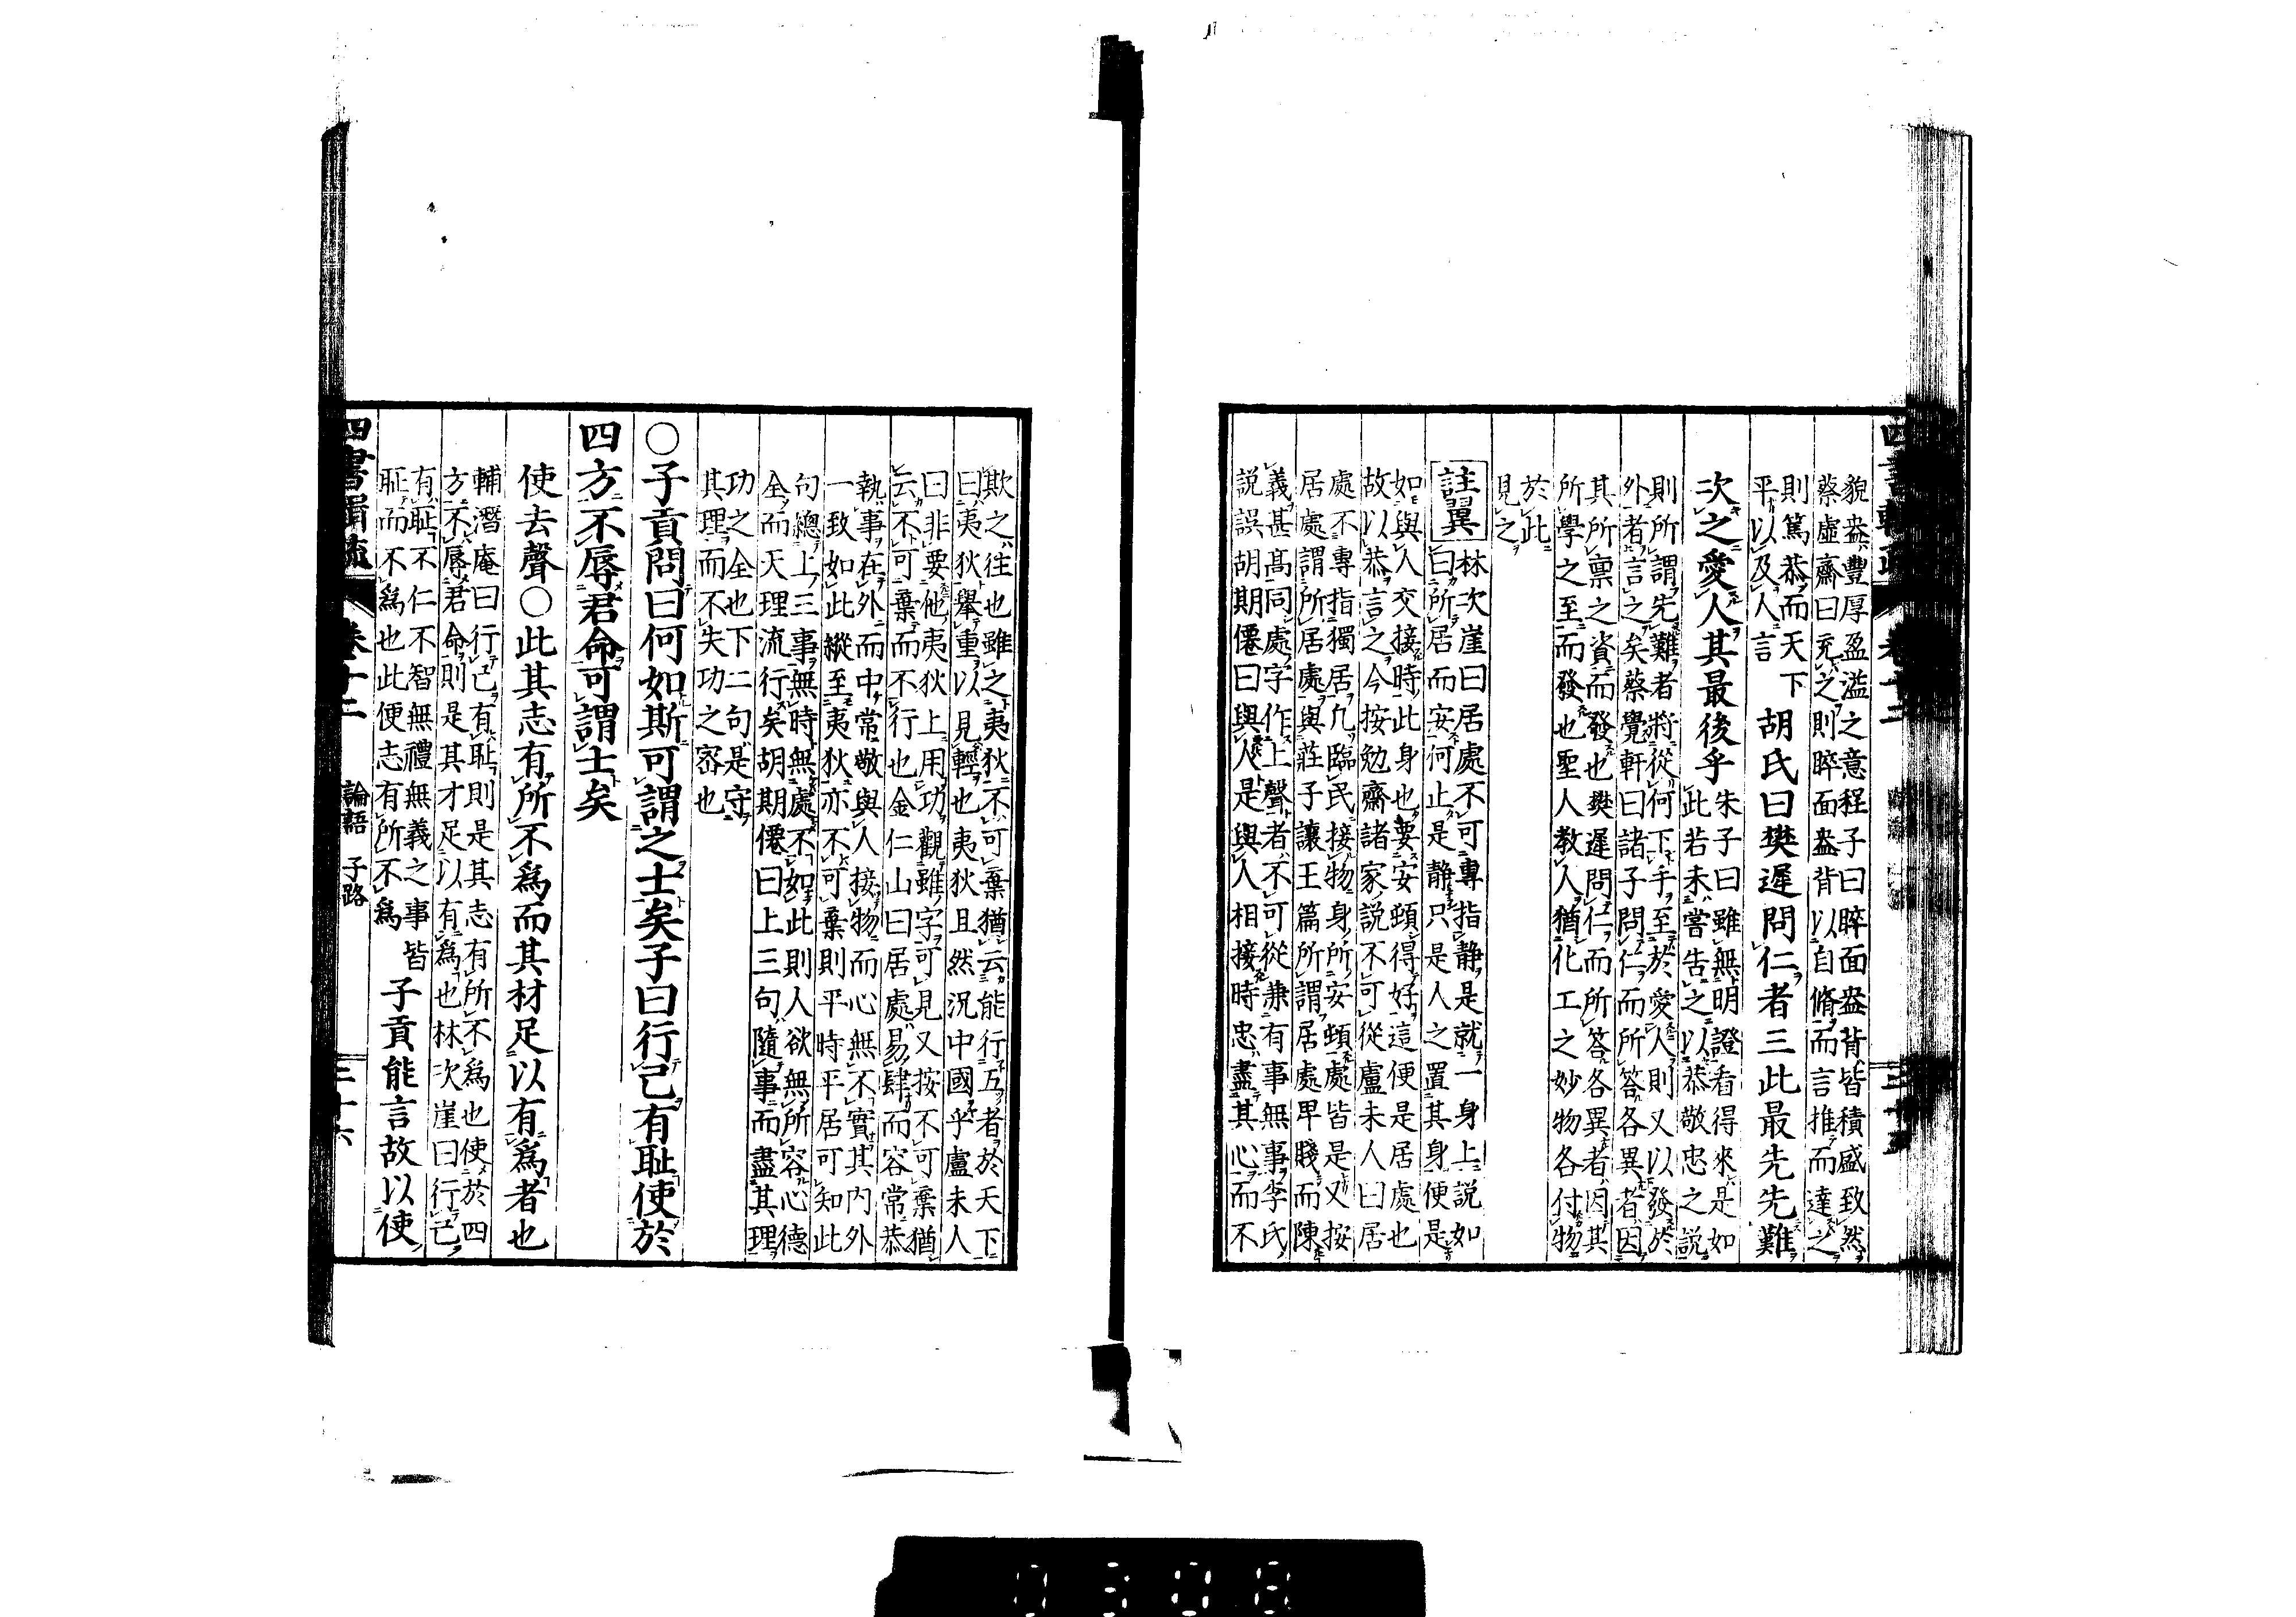 四書輯疏 卷十二
貌盎豐厚盈溢之意程子曰睟面盎背皆積盛致然
蔡虛齋曰充之則睟面盎背以自脩而言推而達之
則篤恭而天下
平以及人言
胡氏曰樊遲問仁者三此最先先難
次之愛人其最後乎
朱子曰雖無明證看得來是如
此若未嘗告之以恭敬忠之說
則所謂先難者將從何下手至於愛人則又以發於
外者言之矣蔡覺軒曰諸子問仁而所答各異者因
其所稟之資而發也樊遲問仁而所答各異者因其
所學之至而發也聖人教人猶化工之妙物各付物
於此
見之
註翼
林次崖曰居處不可專指靜是就一身上說如
曰所居而安何止是靜只是人之置其身便是
如與人交接時此身也要安頓得好這便是居處也
故以恭言之今按勉齋諸家說不可從盧未人曰居
處不專指獨居凡臨民接物身所安頓處皆是又按
居處謂所居處與莊子讓王篇所謂居處卑賤而陳
義甚高同處字作上聲者不可從兼有事無事李氏
說誤胡期僊曰與人是與人相接時忠盡其心而不
欺之往也雖之夷狄不可棄猶云能行五者於天下
曰夷狄舉重以見輕也夷狄且然況中國乎盧未人
曰非要他夷狄上用功觀雖字可見又按不可棄猶
云不可棄而不行也金仁山曰居處易肆而容常恭
執事在外而中常敬與人接物而心無不實其內外
一致如此縱至夷狄亦不可棄則平時平居可知此
句總上三事無時無處不如此則人欲無所容心德
全而天理流行矣胡期僊曰上三句隨事而盡其理
功之全也下二句是守
其理而不失功之密也
○子貢問曰何如斯可謂之士矣子曰行己有恥使於
四方不辱君命可謂士矣
使去聲○此其志有所不爲而其材足以有爲者也
輔潛庵曰行己有恥則是其志有所不爲也使於四
方不辱君命則是其才足以有爲也林次崖曰行己
有恥不仁不智無禮無義之事皆
恥而不爲也此便志有所不爲
子貢能言故以使
四書輯疏 卷十二 論語 子路 三十六